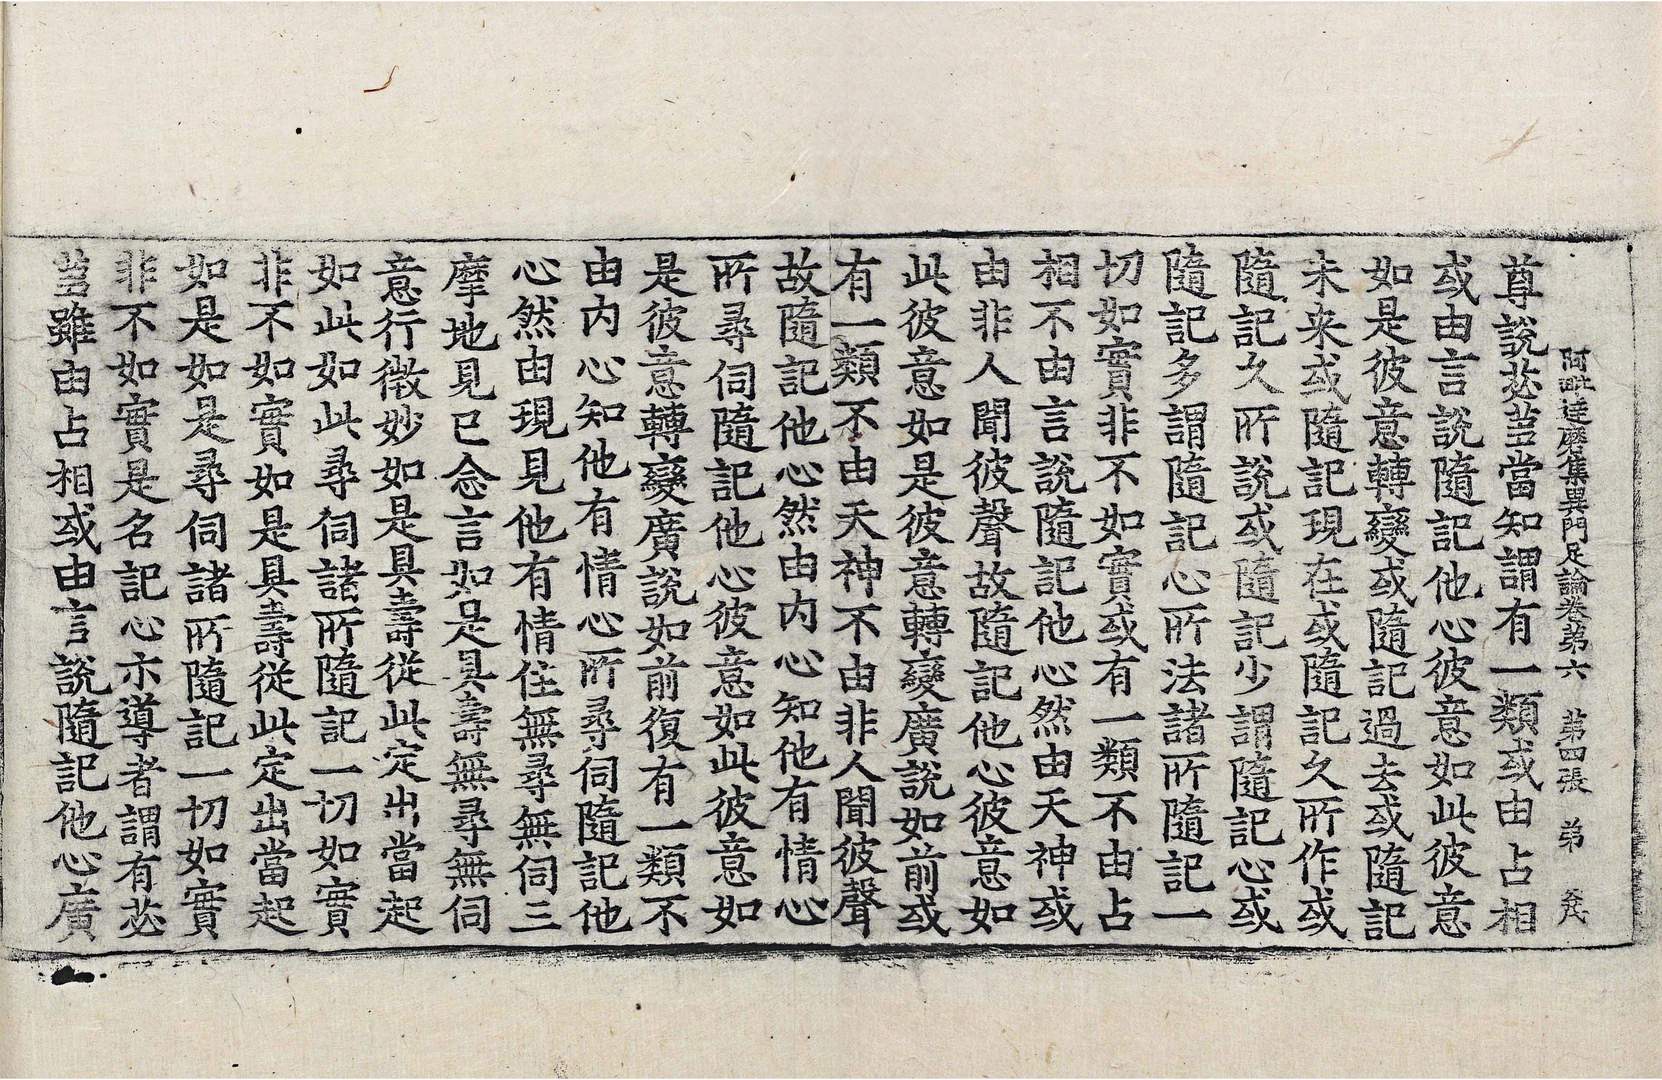 阿毗達磨集異門足論卷第六　第四張　弟
尊說苾芻當知謂有一類或由占相
或由言說隨記他心彼意如此彼意
如是彼意轉變或隨記過去或隨記
未來或隨記現在或隨記久所作或
隨記久所說或隨記少謂隨記心或
隨記多謂隨記心所法諸所隨記一
切如實非不如實或有一類不由占
相不由言說隨記他心然由天神或
由非人聞彼聲故隨記他心彼意如
此彼意如是彼意轉變廣說如前或
有一類不由天神不由非人聞彼聲
故隨記他心然由內心知他有情心
所尋伺隨記他心彼意如此彼意如
是彼意轉變廣說如前復有一類不
由內心知他有情心所尋伺隨記他
心然由現見他有情住無尋無伺三
摩地見已念言如是具壽無尋無伺
意行微妙如是具壽從此定出當起
如此如此尋伺諸所隨記一切如實
非不如實如是具壽從此定出當起
如是如是尋伺諸所隨記一切如實
非不如實是名記心示導者謂有苾
芻雖由占相或由言說隨記他心廣